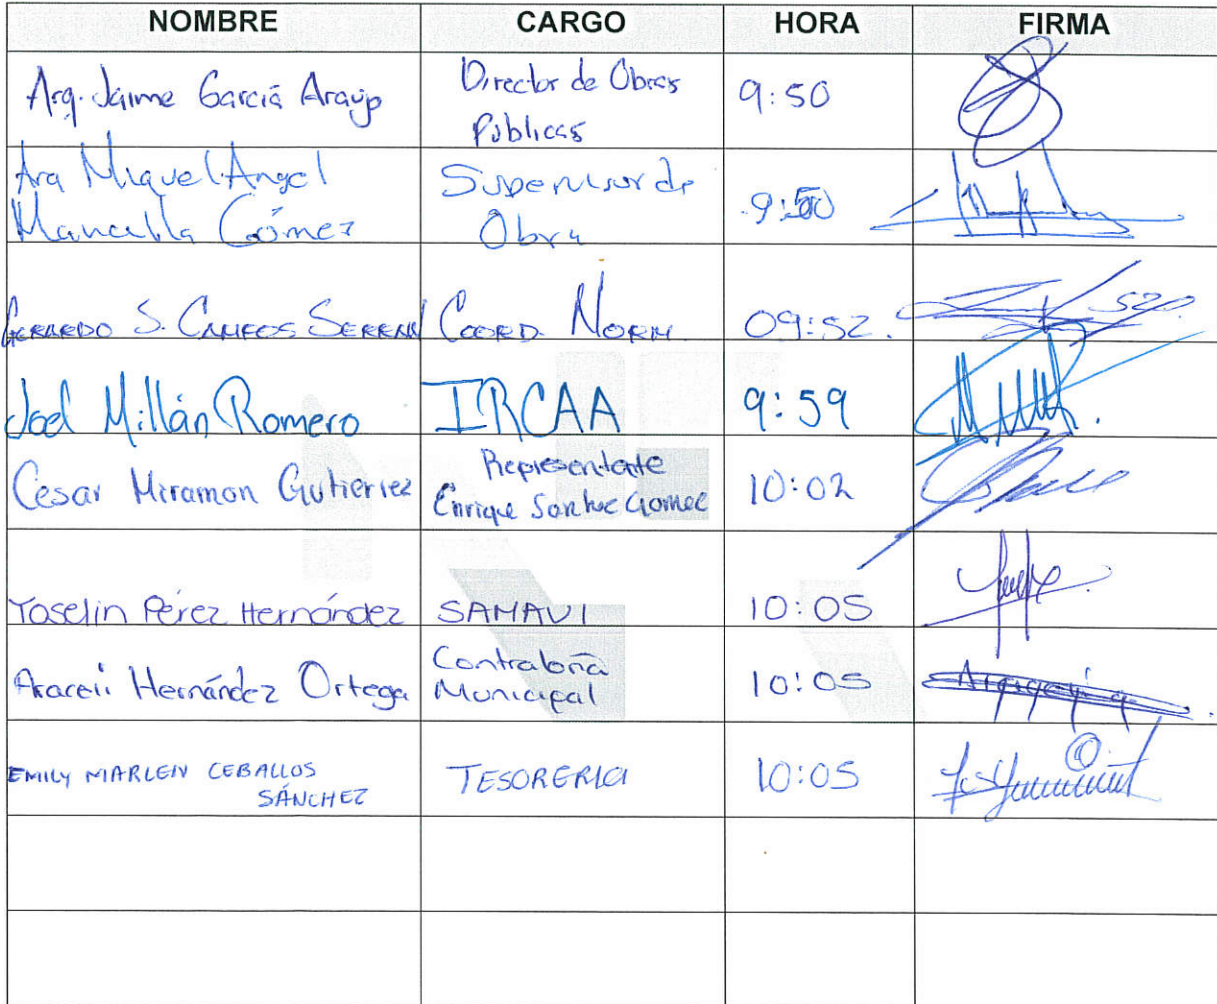 NOMBRE CARGO HORA FIRMA
Arq. Jaime García Araujo Director de Obras 9:50
Públicas
Arq Miguel Angel Supervisor de 9:50
Mancilla Gómez Obra
GERARDO S. CAMPOS SERRANO COORD. NORM. 09:52.
Joel Millán Romero IRCAA 9:59
Cesar Miramon Gutierrez Representante 10:02
Enrique Santos Gomez
Yoselin Pérez Hernández SAMAVI 10:05
Araceli Hernández Ortega Contraloría 10:05
Municipal
EMILY MARLEN CEBALLOS TESORERIA 10:05
SÁNCHEZ